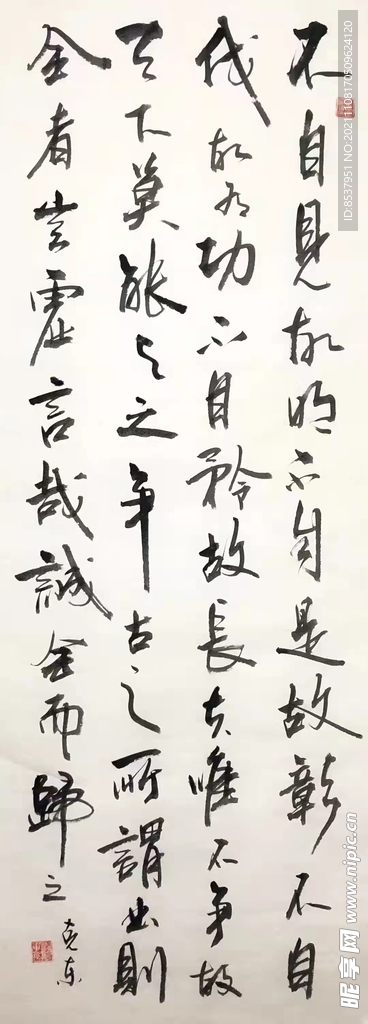 不自見故明不自是故彰不自
伐故有功不自矜故長夫唯不争故
天下莫能与之争古之所謂曲則
全者豈虛言哉誠全而歸之
克东
ID:8537951 NO:20211108170509624120
昵享网 www.nipic.cn